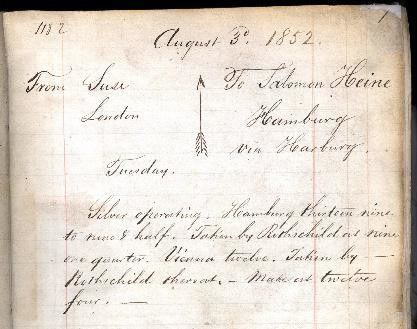 1182
1
August 3d. 1852.
From Suse To Salomon Heine
London Hamburg
via Harburg.
Tuesday.
Silver operating. Hamburg thirteen nine
to nine & half. Taken by Rothschild at nine
one quarter. Vienna twelve. Taken by —
Rothschild thereat. — Make at twelve
four. —